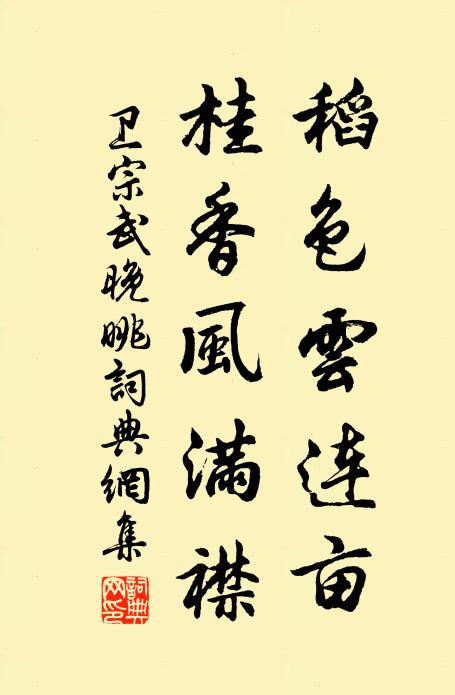 稻色雲连亩
桂香風滿襟
卫宗武晚眺詞典網集
詞典网印